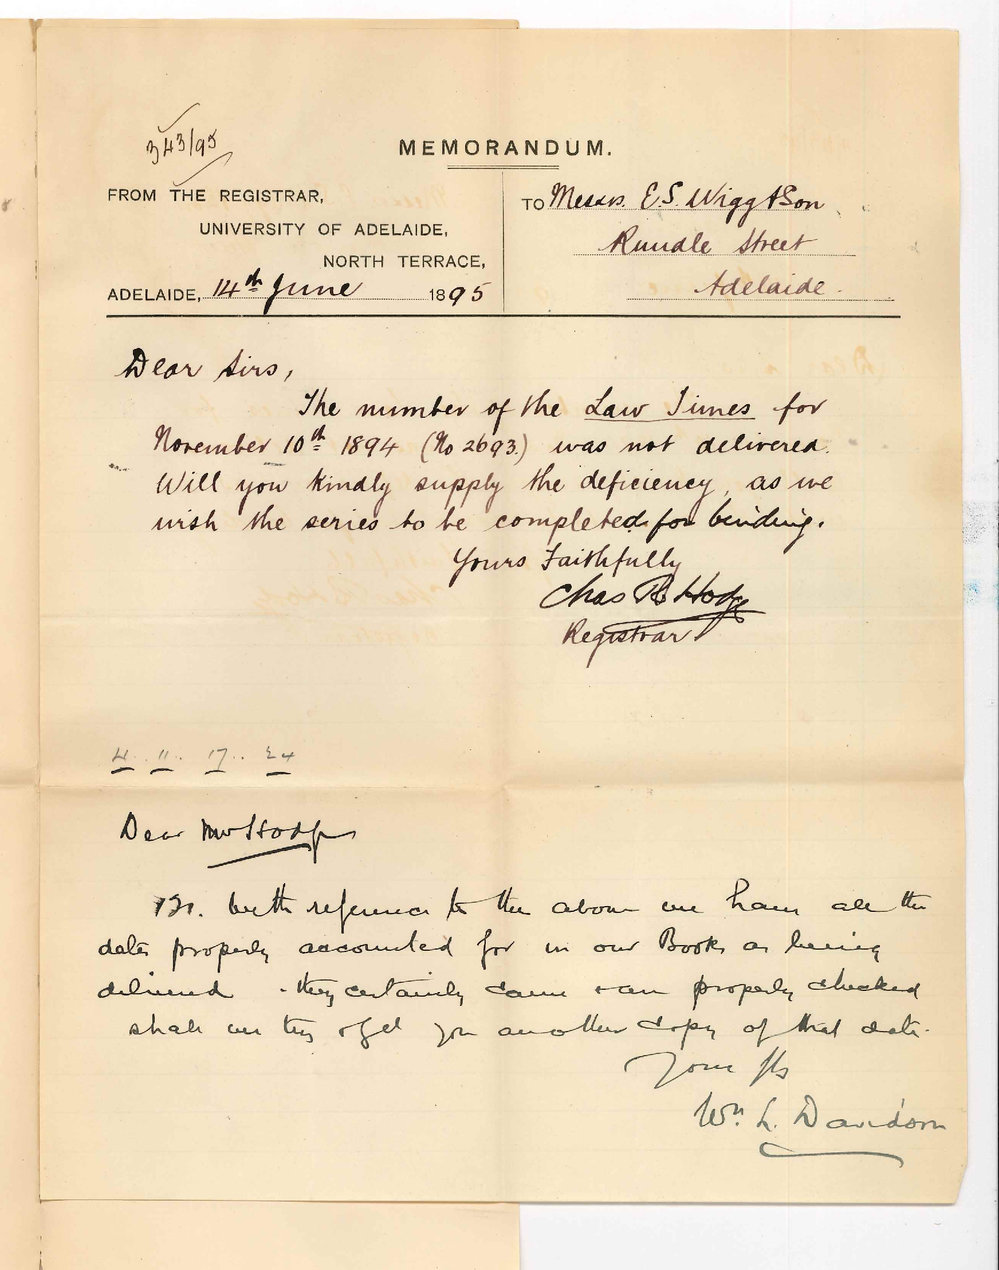 343/95
MEMORANDUM.
FROM THE REGISTRAR,
UNIVERSITY OF ADELAIDE,
NORTH TERRACE,
ADELAIDE, 14th June 1895
TO Messrs. E.S. Wigg & Son
Rundle Street
Adelaide.
Dear Sirs,
The number of the Law Times for
November 10th 1894 (No 2693.) was not delivered.
Will you kindly supply the deficiency, as we
wish the series to be completed for binding.
Yours Faithfully
Chas R Hodge
Registrar
4. 11. 17. 24
Dear Mr Hodge
with reference to the above we have all the
dates properly accounted for in our Books as being
delivered they certainly came properly checked
shall we try & get you another copy of that date.
Yours
Wm. L. Davidson